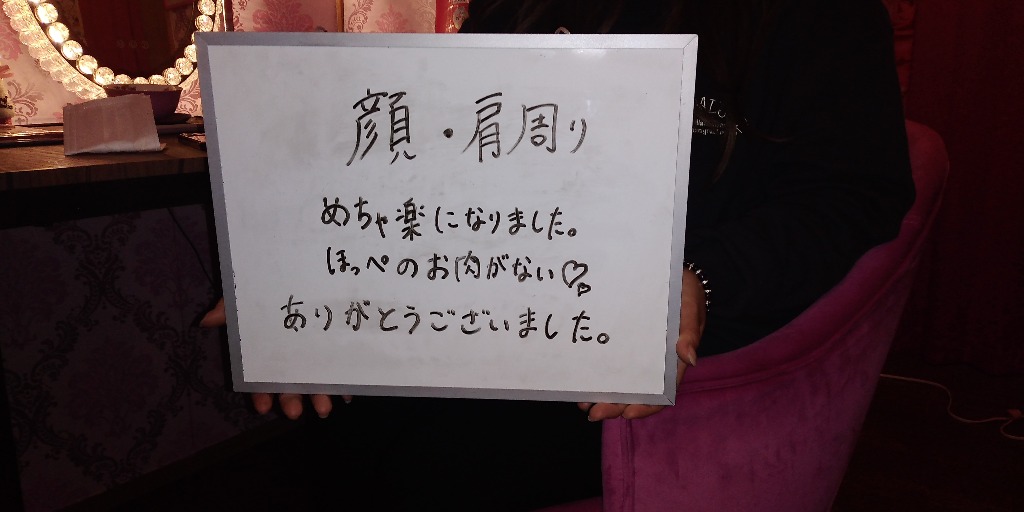 顔・肩周り
めちゃ楽になりました。
ほっぺのお肉がない♡
ありがとうございました。